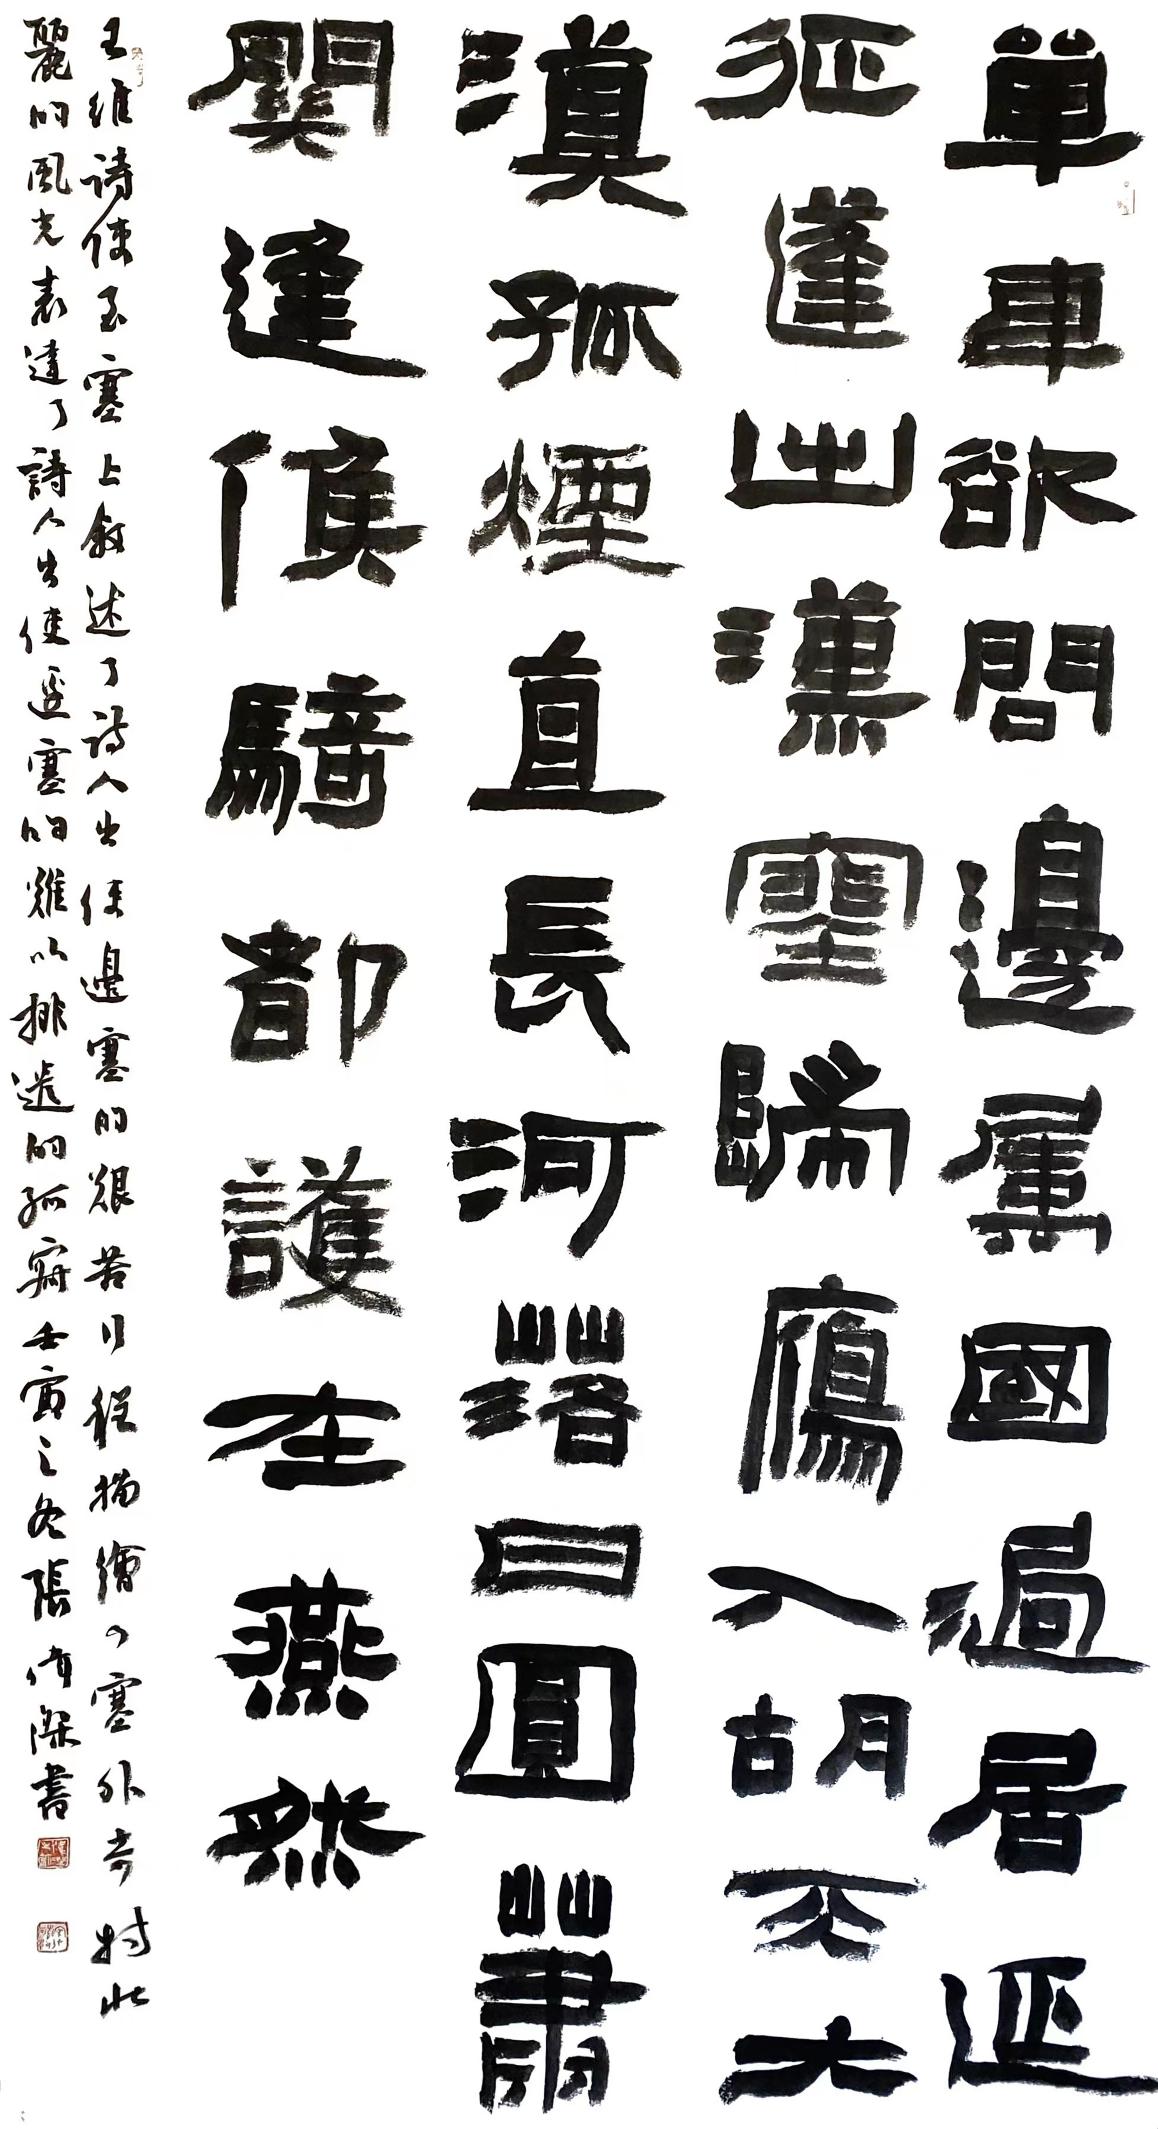 單車欲問邊屬國過居延
征蓬出漢塞歸鴈入胡天大
漠孤煙直長河落日圓蕭
關逢候騎都護在燕然
王維詩使至塞上敘述了詩人出使邊塞的艱苦行程描繪了塞外奇特壯
麗的風光表達了詩人出使邊塞的難以排遣的孤寂壬寅之冬張偉書